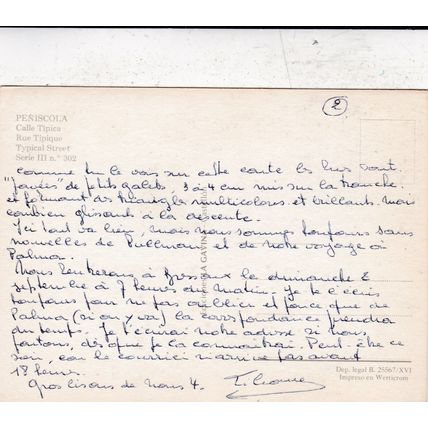 2
PEÑISCOLA
Calle Típica
Rue Tipique
Typical Street
Serie III n.º 302
comme tu le vois sur cette carte les rues sont
"pavées" de petits galets 3 à 4 cm mis sur la tranche
et formant des triangles multicolores et brillants mais
combien glissants à la descente.
Ici tout va bien, mais nous sommes toujours sans
nouvelles de Pullman et de notre voyage à
Palma.
Nous rentrerons à le dimanche 2
septembre à 7 heures du matin. Je te l'écris
toujours pour ne pas oublier et parce que de
Palma (si on y va) la correspondance prendra
du temps. Je t'écrirai notre adresse si nous
partons, dès que je la connaîtrai. Peut-être ce
soir, car le courrier n'arrive pas avant
18 heures.
Gros bisous de nous 4.
Dep. legal B. 25567/XVI
Impreso en